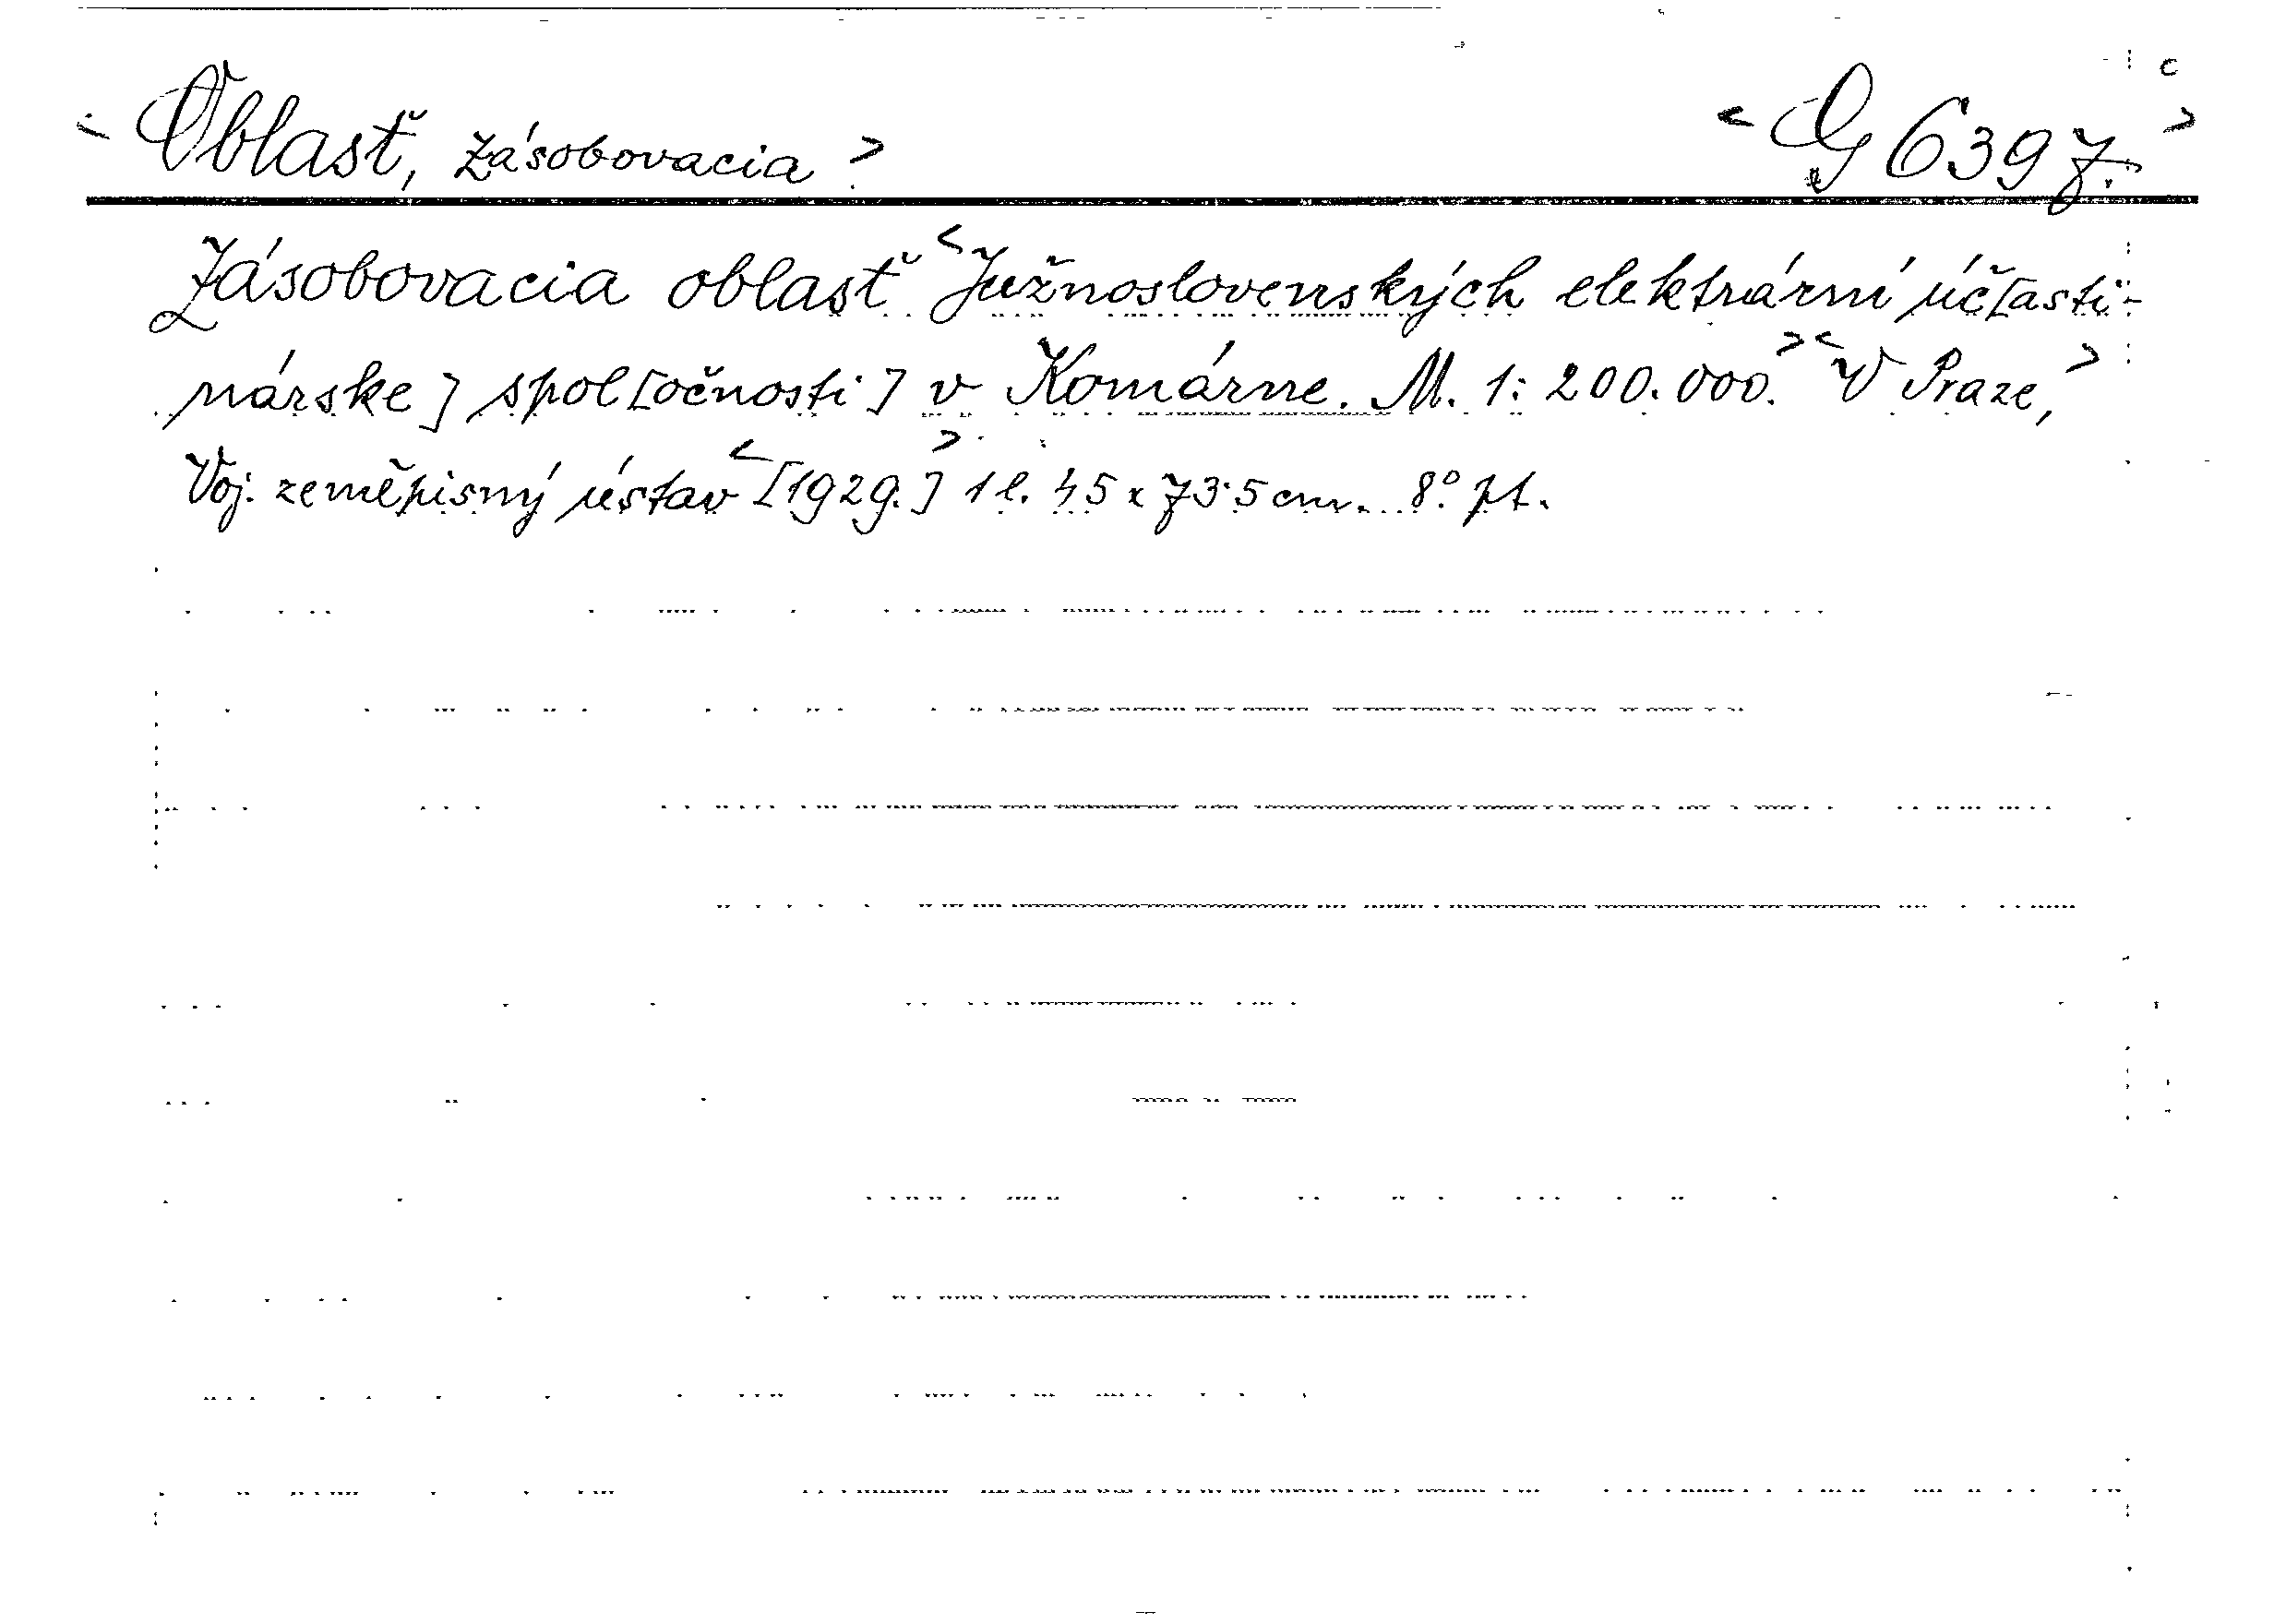 < Oblasť, zásobovacia > < G 6397. >
c
Zásobovacia oblasť < Južnoslovenských elektrární úč[asti-
nárskej] spol[očnosti] v Komárne. M. 1:200.000. > < V Praze, >
Voj. zeměpisný ústav < [1929.] > 1 l. 45 x 73·5 cm. 8° pt.